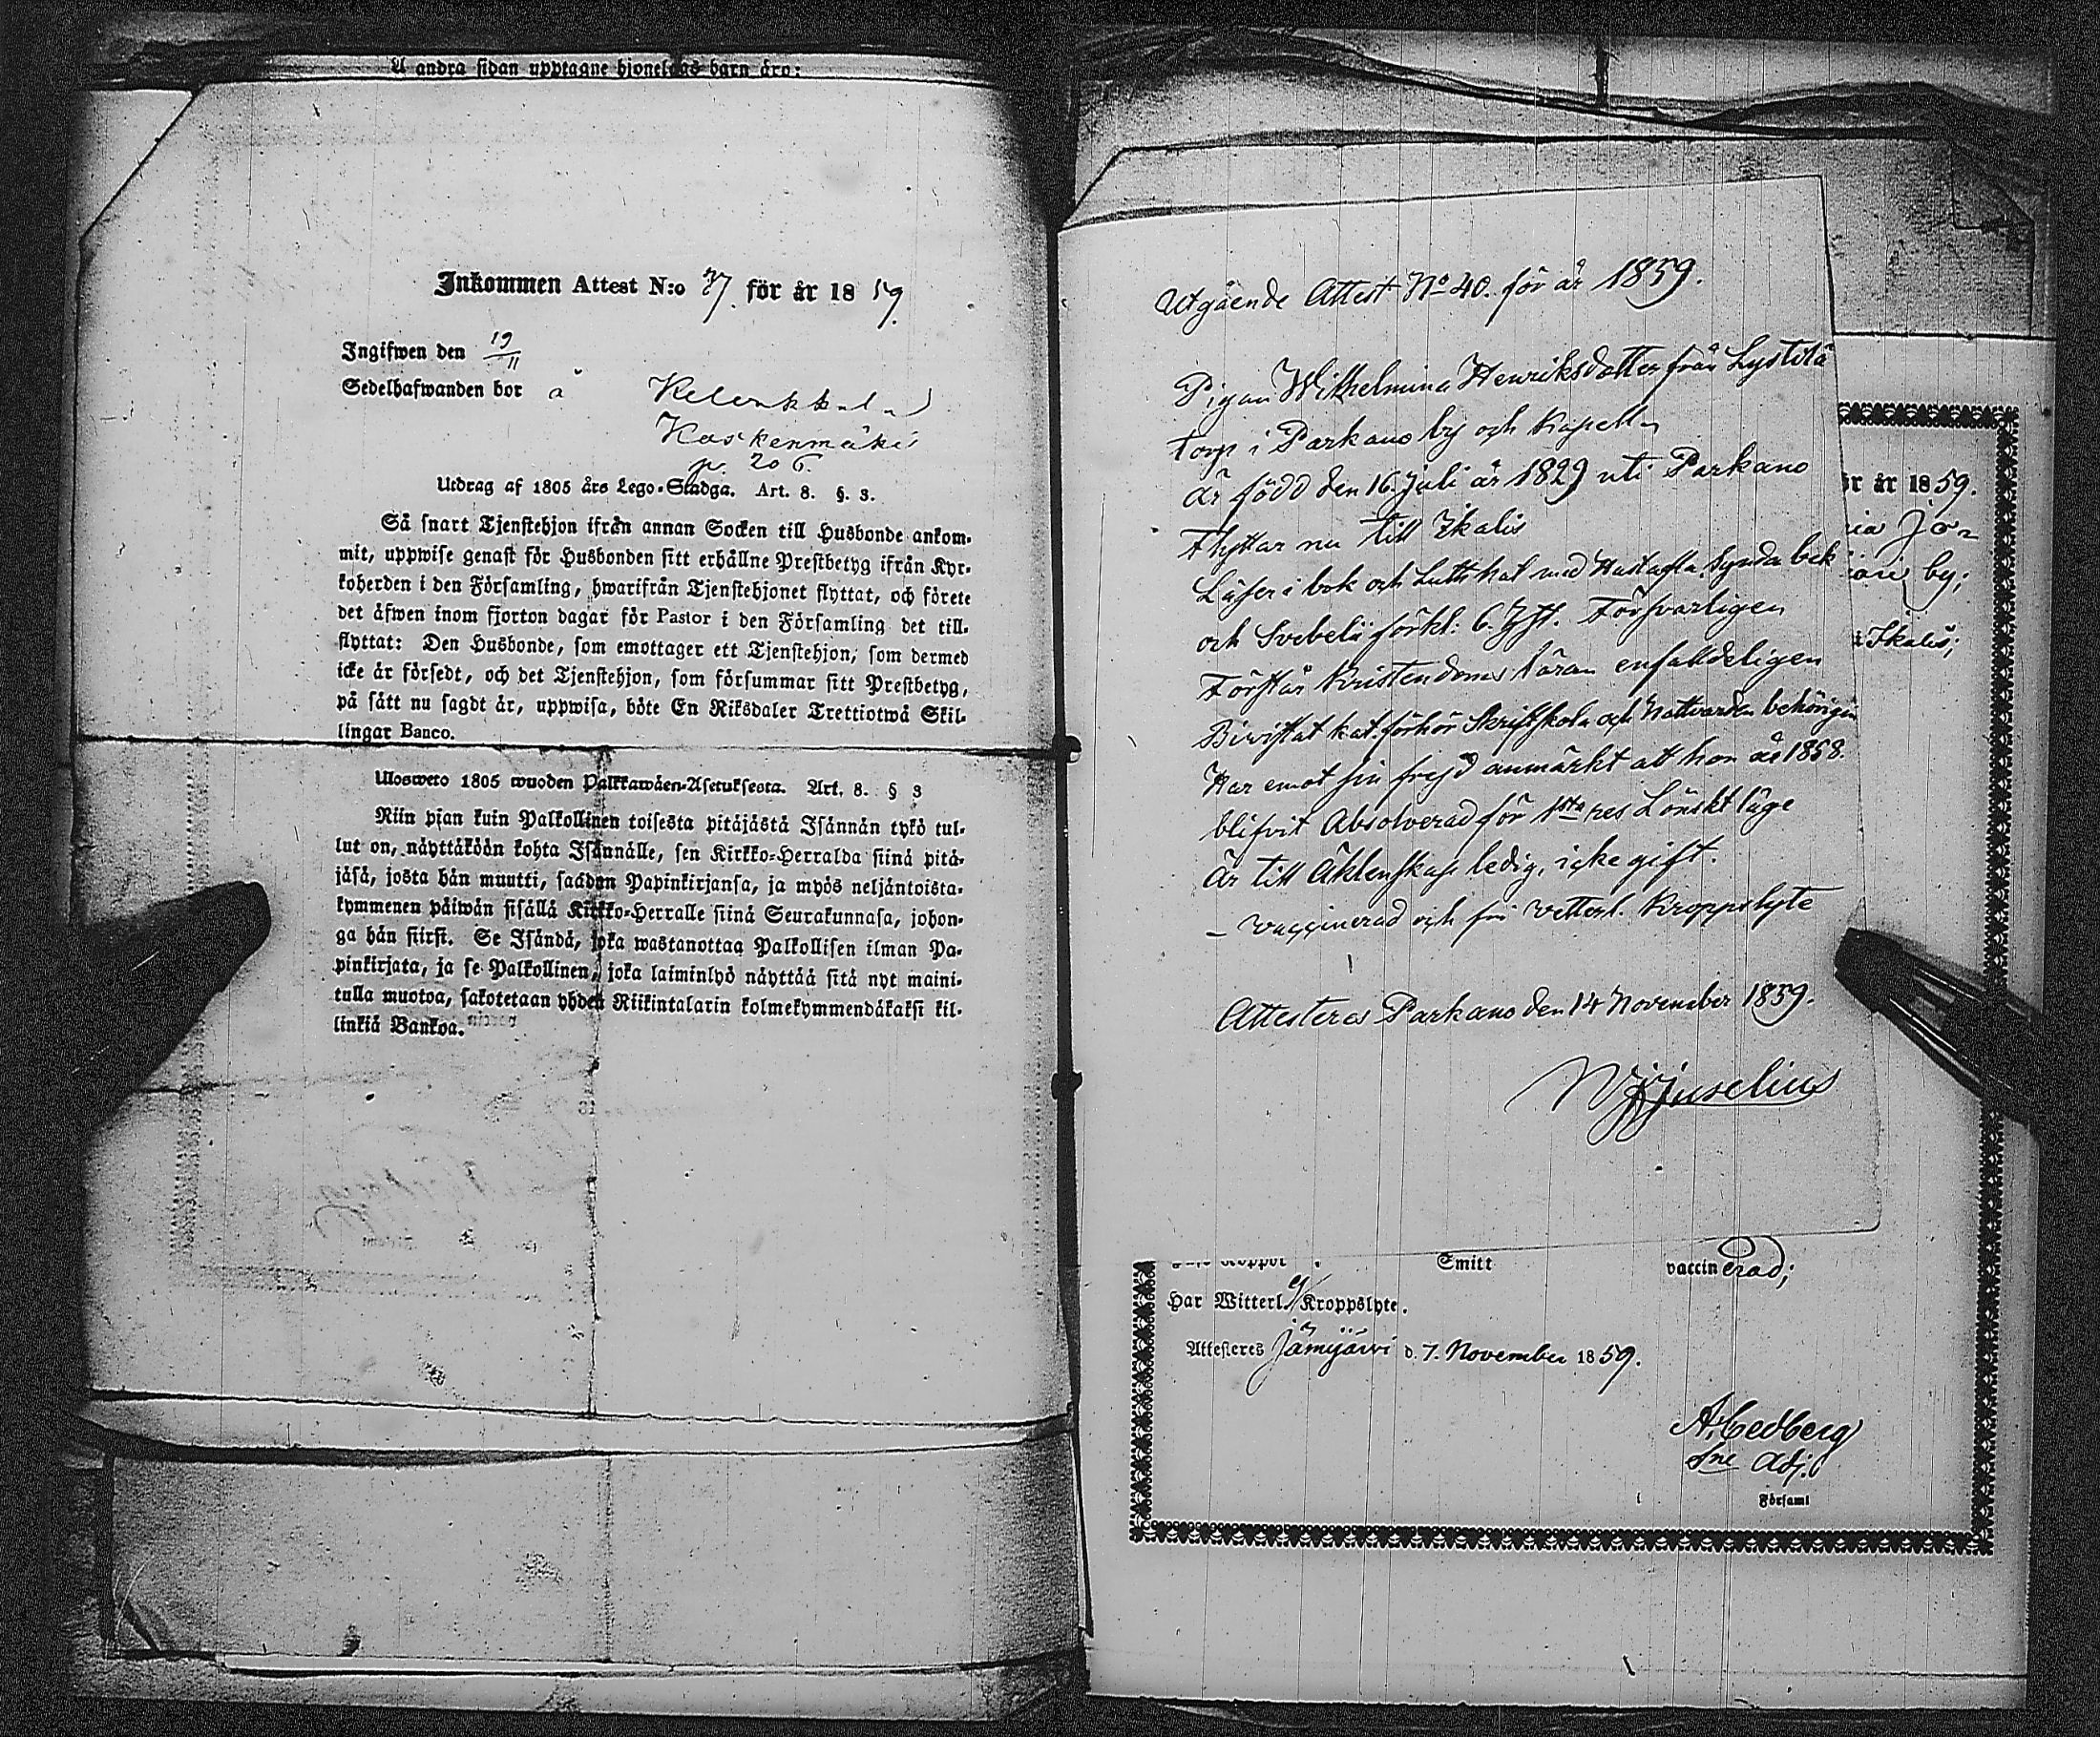 å andra sidan upptagne hjonelags barn äro:
Inkommen Attest N:o 77. för år 1859.
Ingifwen den 19/11
Sedelhafwanden bor å
Koskenmäki
p. 206.
Utdrag af 1805 års Lego-Stadga. Art. 8. §. 3.
Så snart Tjenstehjon ifrån annan Socken till Husbonde ankom-
mit, uppwise genast för Husbonden sitt erhållne Prestbetyg ifrån Kyr-
koherden i den Församling, hwarifrån Tjenstehjonet flyttat, och förete
det äfwen inom fjorton dagar för Pastor i den Församling det till-
flyttat: Den Husbonde, som emottager ett Tjenstehjon, som dermed
icke är försedt, och det Tjenstehjon, som försummar sitt Prestbetyg,
på sätt nu sagdt är, uppwisa, böte En Riksdaler Trettiotwå Skil-
lingar Banco.
Ulosweto 1805 wuoden Palkkawäen-Asetuksesta. Art. 8. § 3
Niin pian kuin Palkollinen toisesta pitäjästä Isännän tykö tul-
lut on, näyttäköön kohta Isännälle, sen Kirkko-Herralda siinä pitä-
jäsä, josta hän muutti, saadun Papinkirjansa, ja myös neljäntoista-
kymmenen päiwän sisällä Kirkko-Herralle siinä Seurakunnasa, johon-
ga hän siirsi. Se Isändä, joka wastanottaa Palkollisen ilman Pa-
pinkirjata, ja se Palkollinen, joka laiminlyö näyttää sitä nyt maini-
tulla muotoa, sakotetaan yhden Riikintalarin kolmekymmendäkaksi kil-
linkiä Bankoa.
Utgående Attest No 40. för år 1859.
Pigan Wilhelmina Henriksdotter från Lystilä
torp i Parkano by och Kapell
är född den 16 Juli år 1829 uti Parkano
Flyttar nu till Ikalis
Läser i bok och Luth. kat. med Hustafla, Synda bek
och Svebelii förkl: 6. Försvarligen
Förstår Kristendoms läran enfalldeligen
Biwistat kat. förhör Skriftskola och Nattvarden behörigen
Har emot sin frejd anmärkt att hon år 1858.
blifvit Absolverad för 1sta res Lönskt läge
Är till Äktenskap ledig, icke gift.
– Vaccinerad och fri vetterl. Kroppslyte
Attesteras Parkano den 14 November 1859.
Juselius
ör år 1859.
ria Jo-
by;
i Ikalis;
Smitt vaccinerad;
Har Witterl. ej Kroppslyte.
Attesteres Jämijärvi d. 7. November 1859.
A. Cedberg
Sne Adj.
Församl